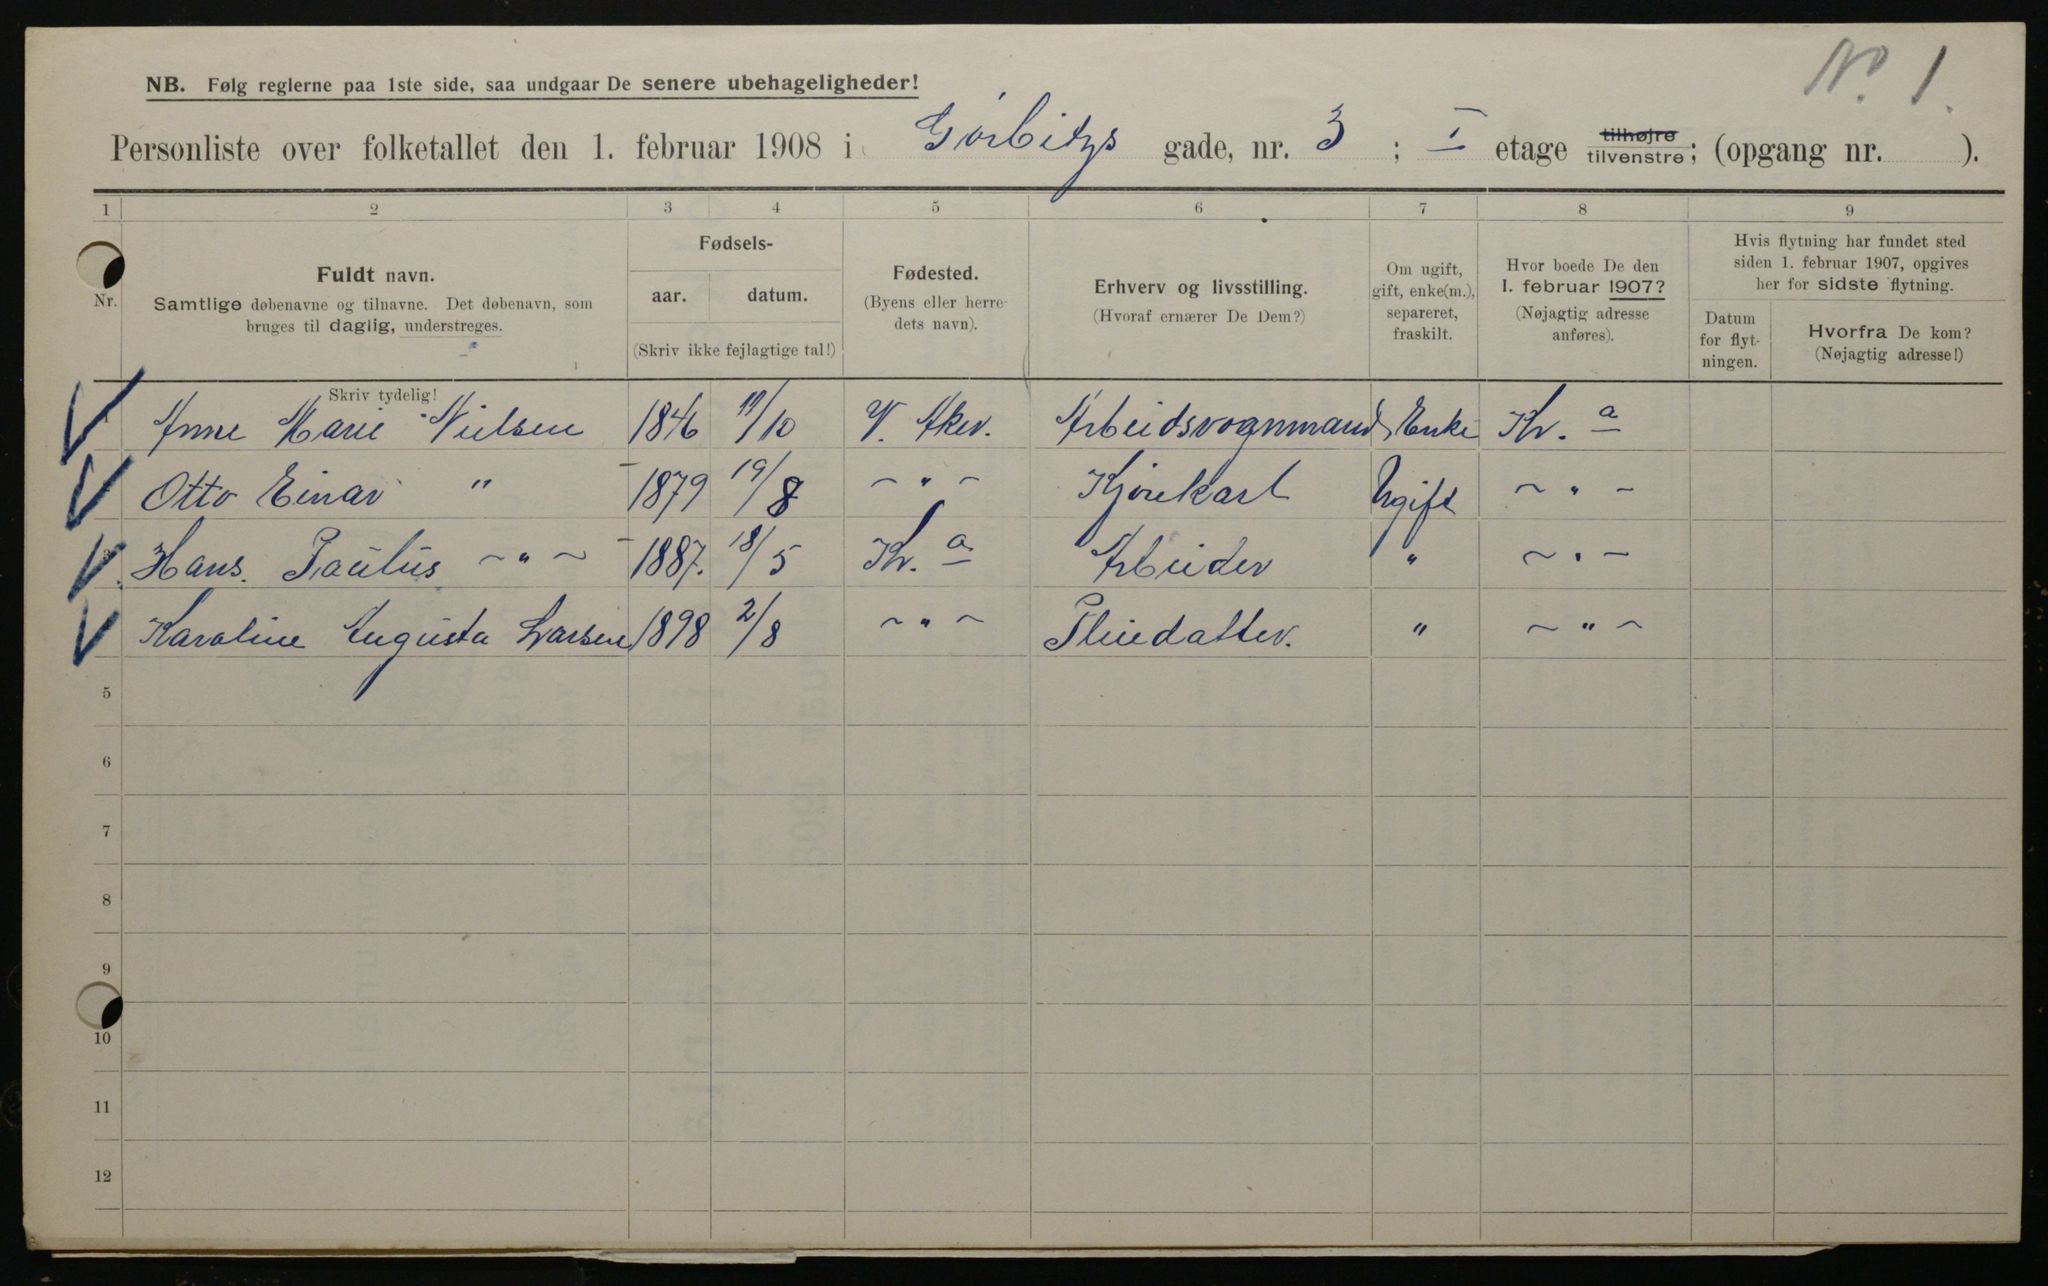 No. 1.
NB. Følg reglerne paa 1ste side, saa undgaar De senere ubehageligheder!
Personliste over folketallet den 1. februar 1908 i Gørbitzs gade, nr. 3 ; I etage tilhøjre tilvenstre; (opgang nr. ).
1 2 3 4 5 6 7 8 9
Nr.
Fuldt navn.
Samtlige døbenavne og tilnavne. Det døbenavn, som
bruges til daglig, understreges.
Skriv tydelig!
Fødsels-
aar. datum.
(Skriv ikke fejlagtige tal!)
Fødested.
(Byens eller herre-
dets navn).
Erhverv og livsstilling.
(Hvoraf ernærer De Dem?)
Om ugift,
gift, enke(m.),
separeret,
fraskilt.
Hvor boede De den
1. februar 1907?
(Nøjagtig adresse
anføres).
Hvis flytning har fundet sted
siden 1. februar 1907, opgives
her for sidste flytning.
Datum
for flyt-
ningen.
Hvorfra De kom?
(Nøjagtig adresse!)
Anne Marie Nielsen 1846 /10 V. Aker. Arbeidsvognmand Enke Kr. a
Otto Einar " 1879 19/8 ~ " ~ Kjørekarl Ugift ~ " ~
Hans Paulus ~ " ~ 1887. 18/5 Kr. a Arbeider " ~ " ~
Karoline Augusta Larsen 1898 2/8 ~ " ~ Pleiedatter. " ~ " ~
5
6
7
8
9
10
11
12